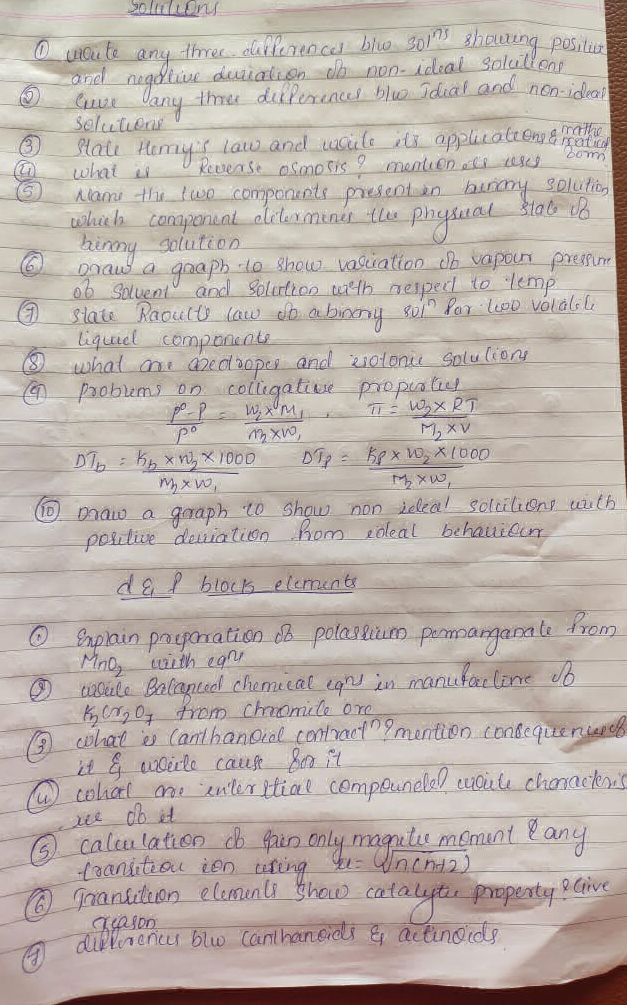 Solutions
① write any three differences b/w solⁿˢ showing positive
and negative deviation of non-ideal solutions
② Give any three differences b/w Idial and non-ideal
solutions
③ State Henry's law and write its applications & mathe
matical
form
④ what is Reverse osmosis? mention its uses
⑤ Name the two components present in binary solution
which component determines the physical state of
binary solution
⑥ Draw a graph to show variation of vapour pressure
of solvent and solution with respect to temp
⑦ State Raoults law of a binary solⁿ for two volatile
liquid components
⑧ what are azeotropes and isotonic solutions
⑨ Problems on colligative properties
p° - p / p° = w₂ × M₁ / m₂ × w₁ , π = w₂ × RT / M₂ × V
DTb = Kb × w₂ × 1000 / m₂ × w₁ DTf = Kf × w₂ × 1000 / m₂ × w₁
⑩ Draw a graph to show non ideal solutions with
positive deviation from ideal behaviour
d & f block elements
① Explain preparation of potassium permanganate from
MnO₂ with eqⁿˢ
② write Balanced chemical eqⁿˢ in manufacture of
K₂Cr₂O₇ from chromite ore
③ what is lanthanoid contractⁿ? mention consequences of
it & write cause for it
④ what are interstial compounds? write characteris
tics of it
⑤ calculation of spin only magnetic moment of any
transition ion using u = √n(n+2)
⑥ Transition elements show catalytic property? Give
reason
⑦ differences b/w lanthanoids & actinoids